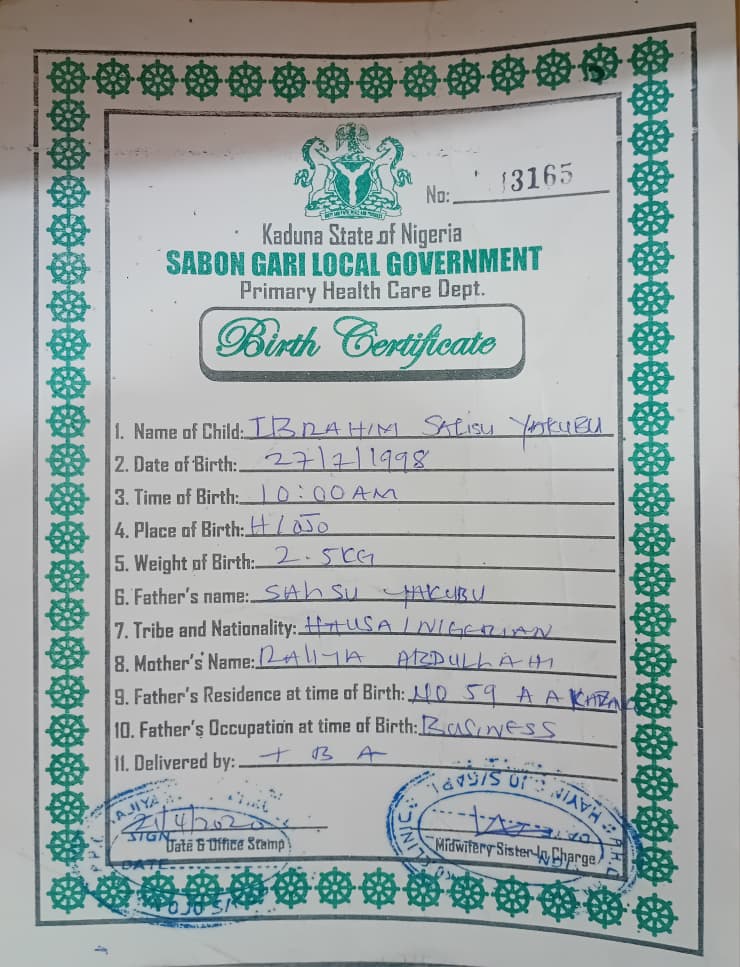 No: 13165
Kaduna State of Nigeria
SABON GARI LOCAL GOVERNMENT
Primary Health Care Dept.
Birth Certificate
1. Name of Child: IBRAHIM Salisu YAKUBU
2. Date of Birth: 27/7/1998
3. Time of Birth: 10:00AM
4. Place of Birth: H/OJO
5. Weight of Birth: 2.5KG
6. Father's name: SALISU YAKUBU
7. Tribe and Nationality: HAUSA / NIGERIAN
8. Mother's Name: RALIYA ABDULLAHI
9. Father's Residence at time of Birth: NO 59 A A
10. Father's Occupation at time of Birth: BUSINESS
11. Delivered by: T B A
SIGN
Date & Office Stamp
DATE
Midwifery Sister-In Charge